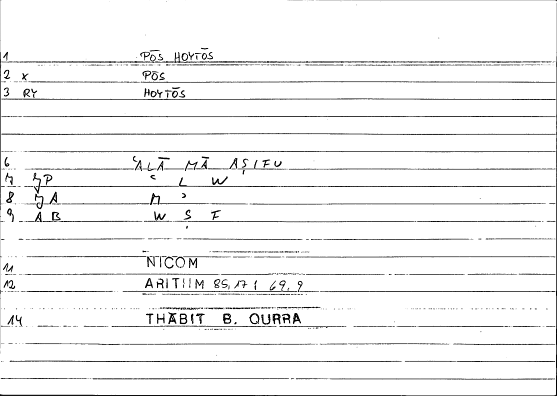 1 PŌS HOYTŌS
2 x PŌS
3 RY HOYTŌS
6 ʿALĀ MĀ AṢIFU
7 ʿ L W
8 M ʾ
9 AB W Ṣ F
11 NICOM
12 ARITHM 85,17; 69,9
14 THĀBIT B. QURRA